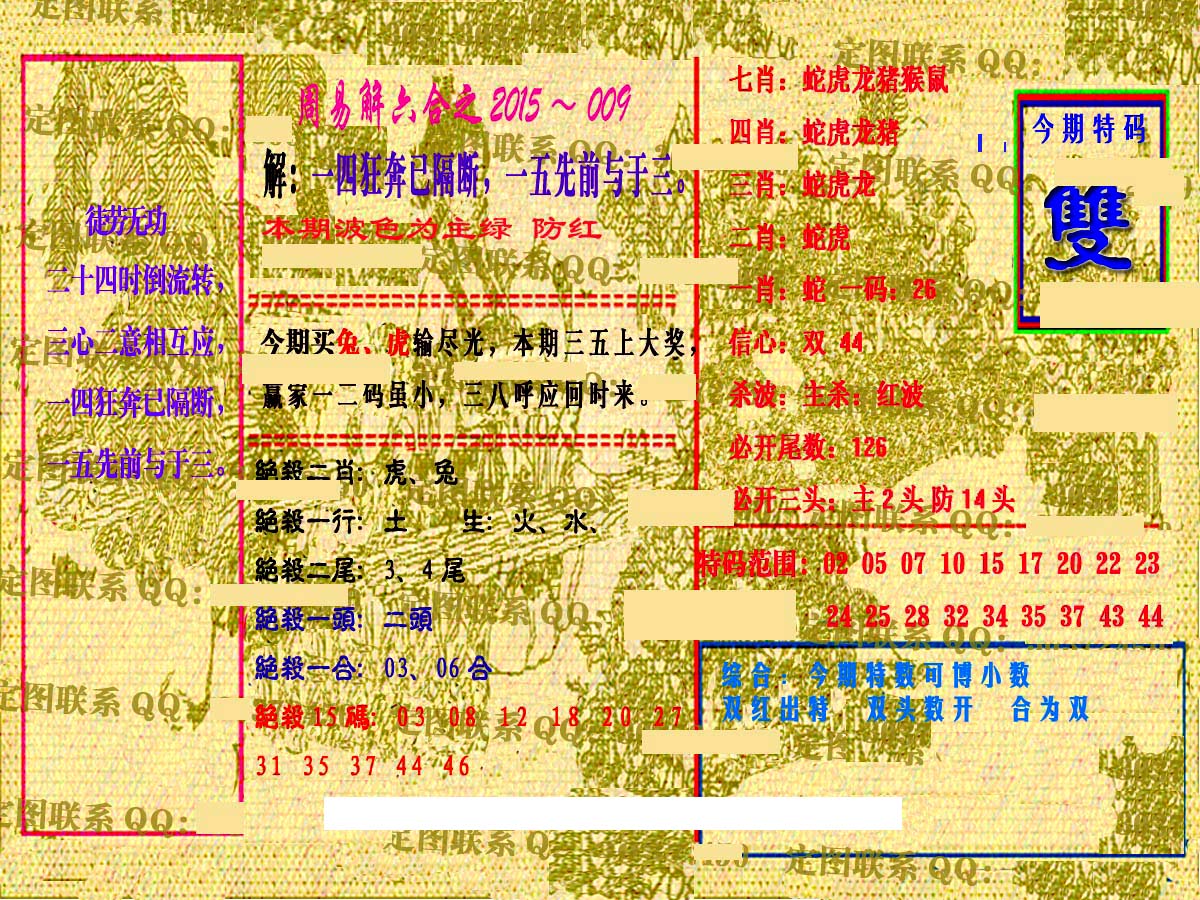 徒劳无功
二十四时倒流转，
三心二意相互应，
一四狂奔已隔断，
一五先前与于三。
周易解六合之2015～009
解：一四狂奔已隔断，一五先前与于三。
本期波色为主绿 防红
今期买兔、虎输尽光，本期三五上大奖，
赢家一二码虽小，三八呼应回时来。
絕殺二肖：虎、兔
絕殺一行：土 生：火、水、
絕殺二尾：3、4尾
絕殺一頭：二頭
絕殺一合：03、06合
絕殺15碼：03 08 12 18 20 27
31 35 37 44 46
七肖：蛇虎龙猪猴鼠
四肖：蛇虎龙猪
三肖：蛇虎龙
二肖：蛇虎
一肖：蛇 一码：26
信心：双 44
杀波：主杀：红波
必开尾数：126
必开三头：主2头防14头
特码范围：02 05 07 10 15 17 20 22 23
24 25 28 32 34 35 37 43 44
今期特码
雙
综合：今期特数可博小数
双红出特，双头数开 合为双
定图联系QQ：
定图联系QQ：
定图联系QQ：
定图联系QQ：
定图联系QQ：
定图联系QQ：